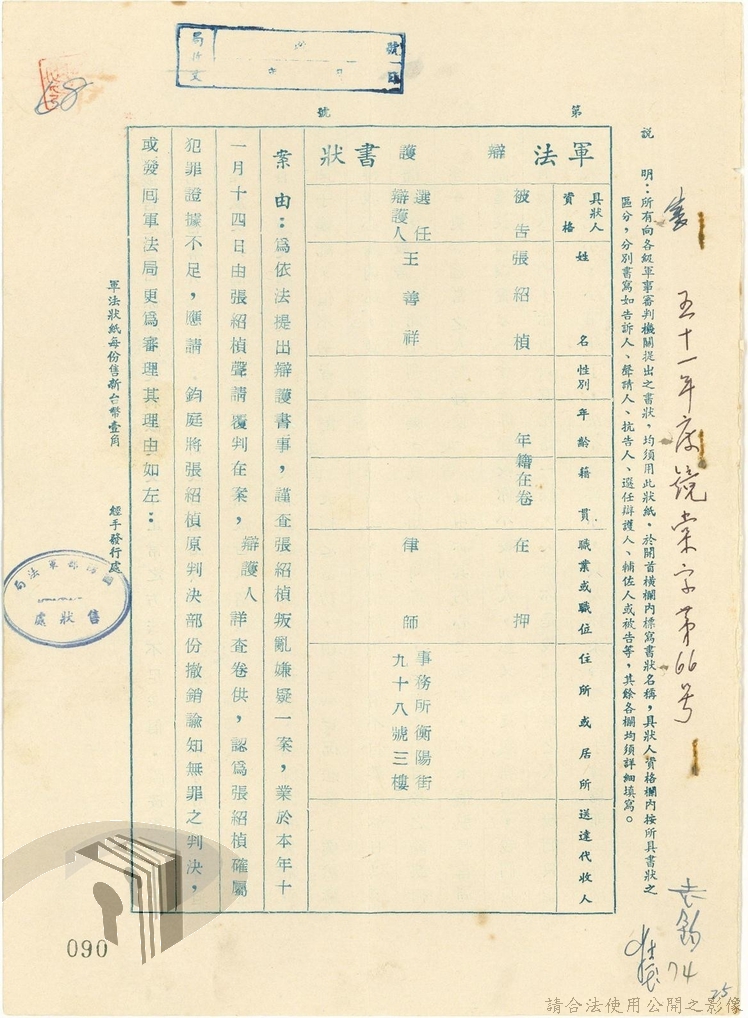 五十一年度鏡棠字第66号
說　明：所有向各級軍事審判機關提出之書狀，均須用此狀紙。於開首橫欄內標寫書狀名稱，具狀人資格欄內按所具書狀之
區分，分別書寫如告訴人、聲請人、抗告人、選任辯護人、輔佐人或被告等，其餘各欄均須詳細填寫。
第　號
軍法辯護書狀
具狀人資格　姓名　性別　年齡　籍貫　職業或職位　住所或居所　送達代收人
被告　張紹楨　年籍在卷　在押
選任辯護人　王善祥　律師　事務所衡陽街九十八號三樓
案由：爲依法提出辯護書事，謹查張紹楨叛亂嫌疑一案，業於本年十
一月十四日由張紹楨聲請覆判在案，辯護人詳查卷供，認爲張紹楨確屬
犯罪證據不足，應請　鈞庭將張紹楨原判決部份撤銷諭知無罪之判決，
或發回軍法局更爲審理其理由如左：
軍法狀紙每份售新台幣壹角　經手發行處
售狀處
68
74
25
090
請合法使用公開之影像